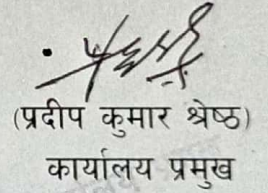 (प्रदीप कुमार श्रेष्ठ)
कार्यालय प्रमुख